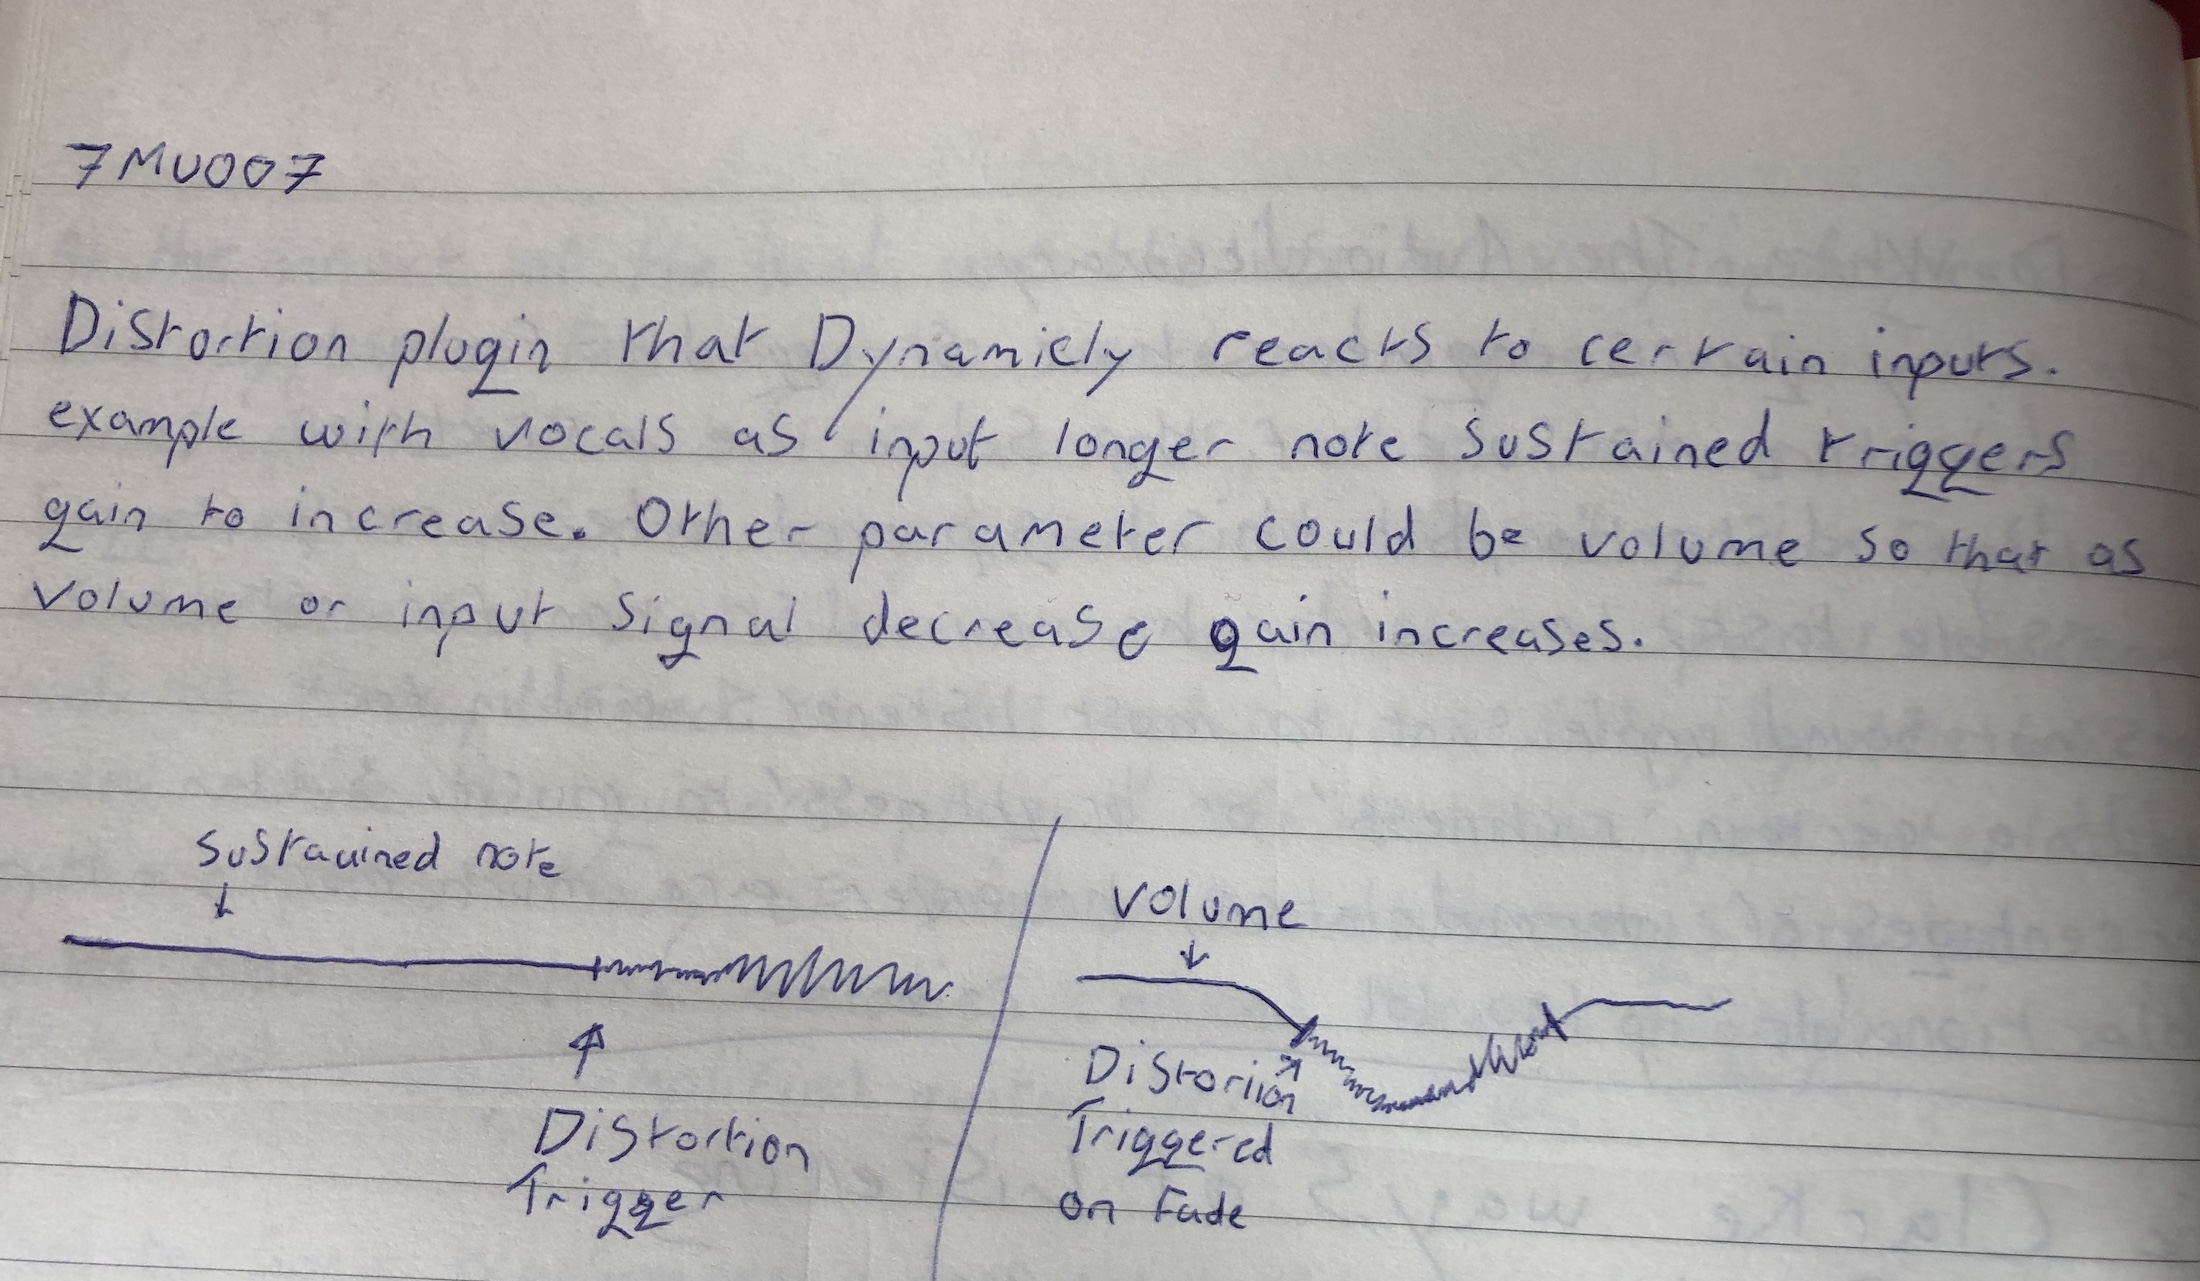 7MU007
Distortion plugin that Dynamicly reacts to certain inputs.
example with vocals as input longer note sustained triggers
gain to increase. Other parameter could be volume so that as
volume or input signal decrease gain increases.
Sustauined note
Volume
Distortion
Trigger
Distortion
Triggered
on Fade